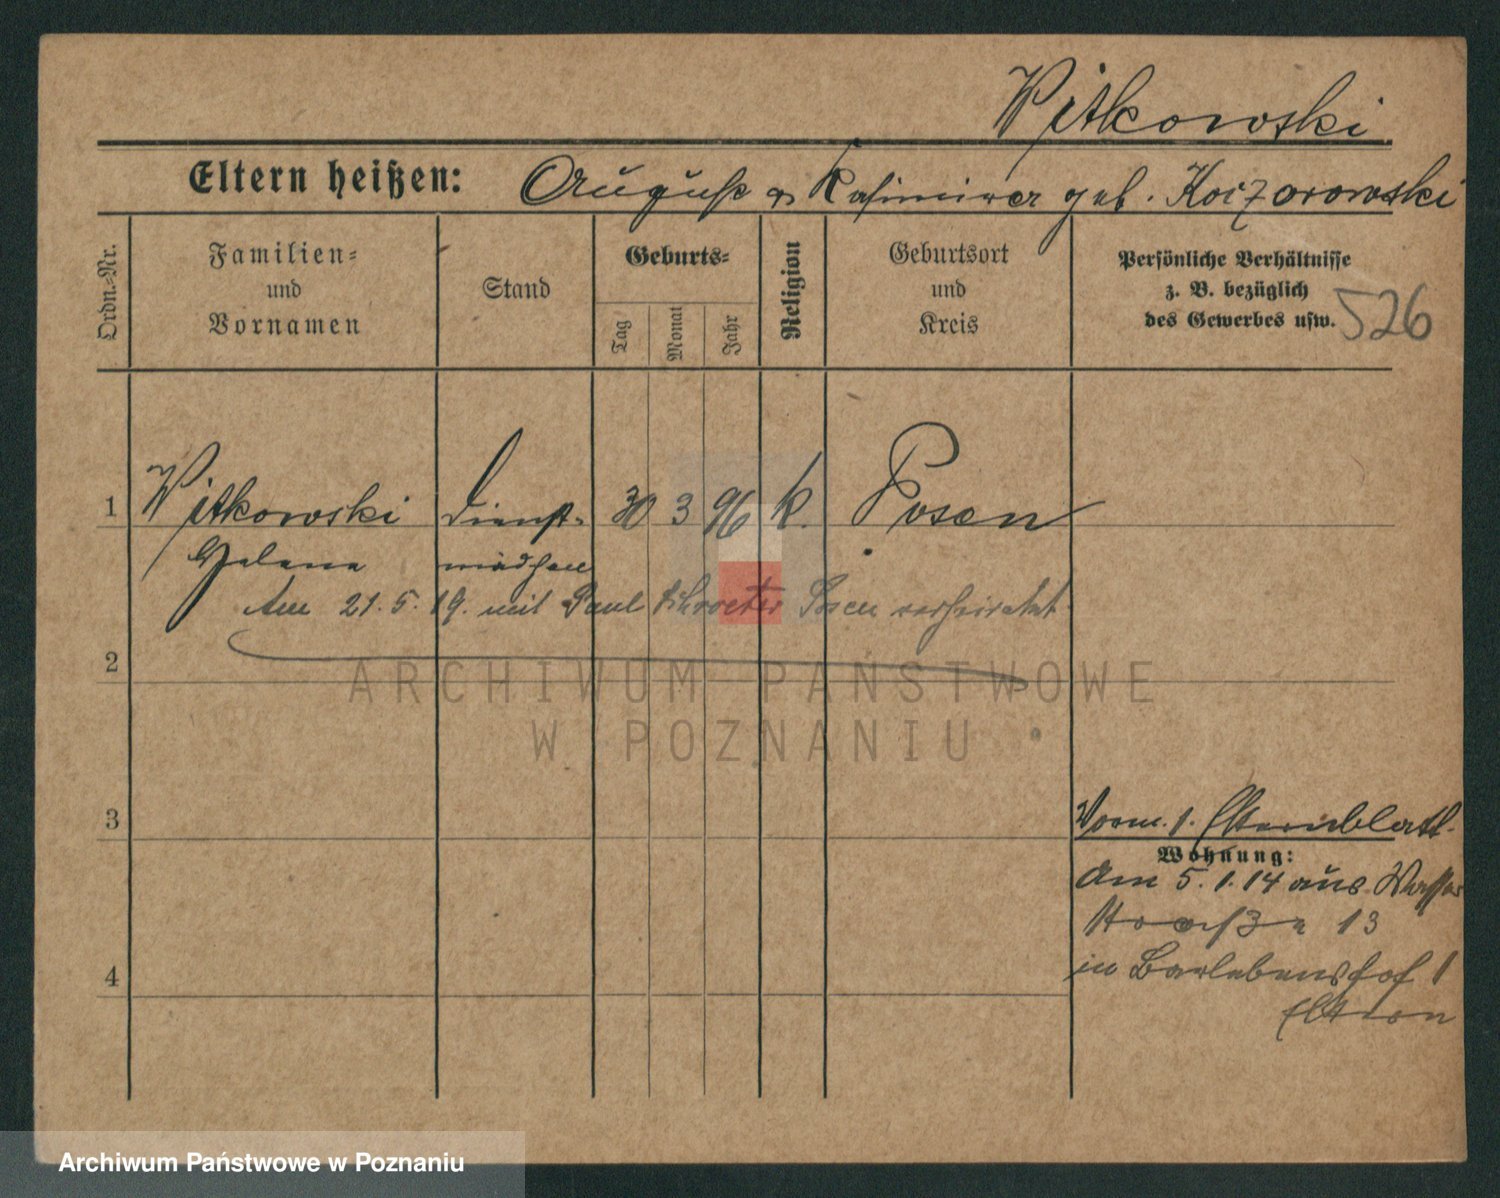 Witkowski
Eltern heißen: August & Kasimira geb. Koczorowski
Ordn.-Nr.
Familien-
und
Vornamen
Stand
Geburts-
Tag
Monat
Jahr
Religion
Geburtsort
und
Kreis
Persönliche Verhältnisse
z. B. bezüglich
des Gewerbes usw. 526
1 Witkowski Dienst- 30 3 96 k. Posen
Helene mädchen
Am 21.5.19. mit Paul Schroeter Posen verheiratet
2
ARCHIWUM PAŃSTWOWE
W POZNANIU
3
Vorm. 1. Elternblatt.
Wohnung:
Am 5.1.14 aus Wasser
straße 13
in Barlebenshof 1
Eltern
4
Archiwum Państwowe w Poznaniu